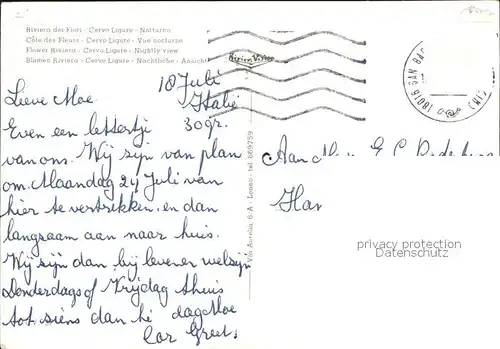 Riviera dei Fiori - Cervo Ligure - Notturno
Côte des Fleurs - Cervo Ligure - Vue nocturne
Flower Riviera - Cervo Ligure - Nightly view
Blumen Riviera - Cervo Ligure - Nachtliche - Ansicht
18 Juli
Italië
30gr.
Lieve Moe
Even een lettertje
van ons. Wij zijn van plan
om Maandag 24 Juli van
hier te vertrekken en dan
langsaam aan naar huis.
Wij zijn dan bij leven en welzijn
Donderdags of Vrijdag thuis
tot siens dan hé dag Moe
Cor Greet.
Aan
Har
18010 SAN BA
tel. 669759
privacy protection
Datenschutz